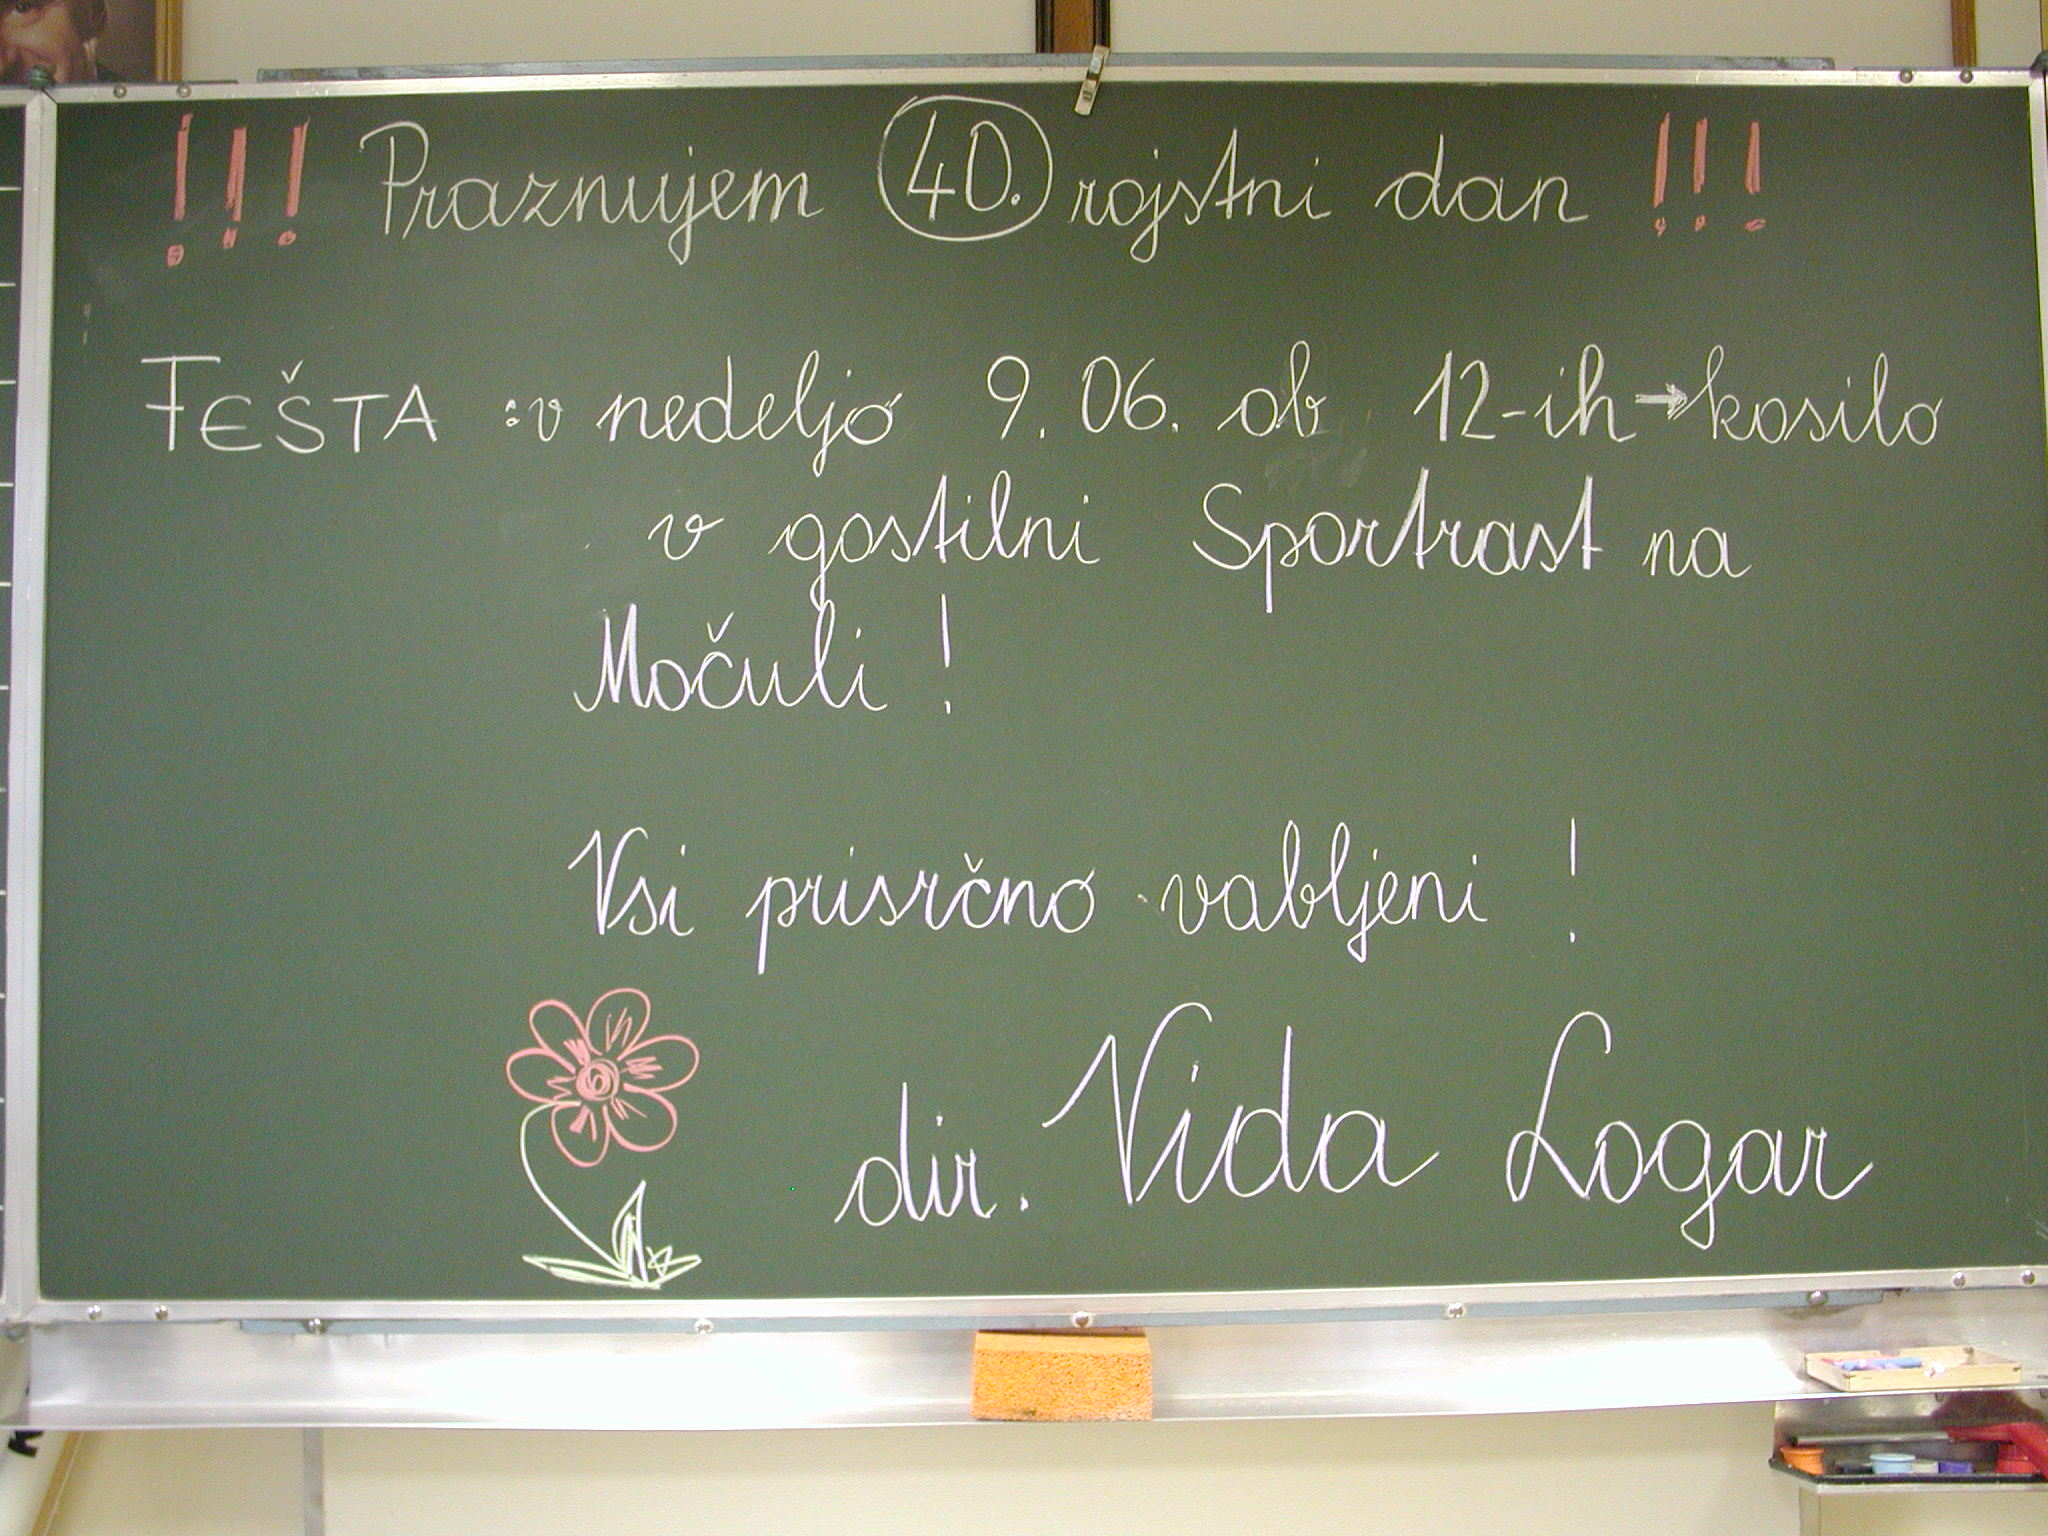 !!! Praznujem 40. rojstni dan !!!
FEŠTA : v nedeljo 9. 06. ob 12-ih → kosilo
v gostilni Sportrast na
Močuli !
Vsi prisrčno vabljeni !
dir. Vida Logar